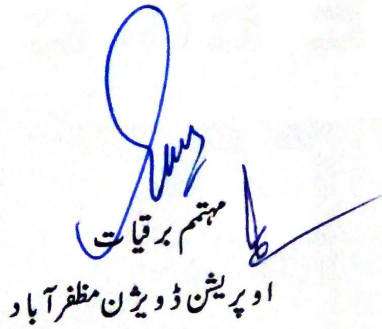 مہتمم برقیات
اوپریشن ڈویژن مظفرآباد